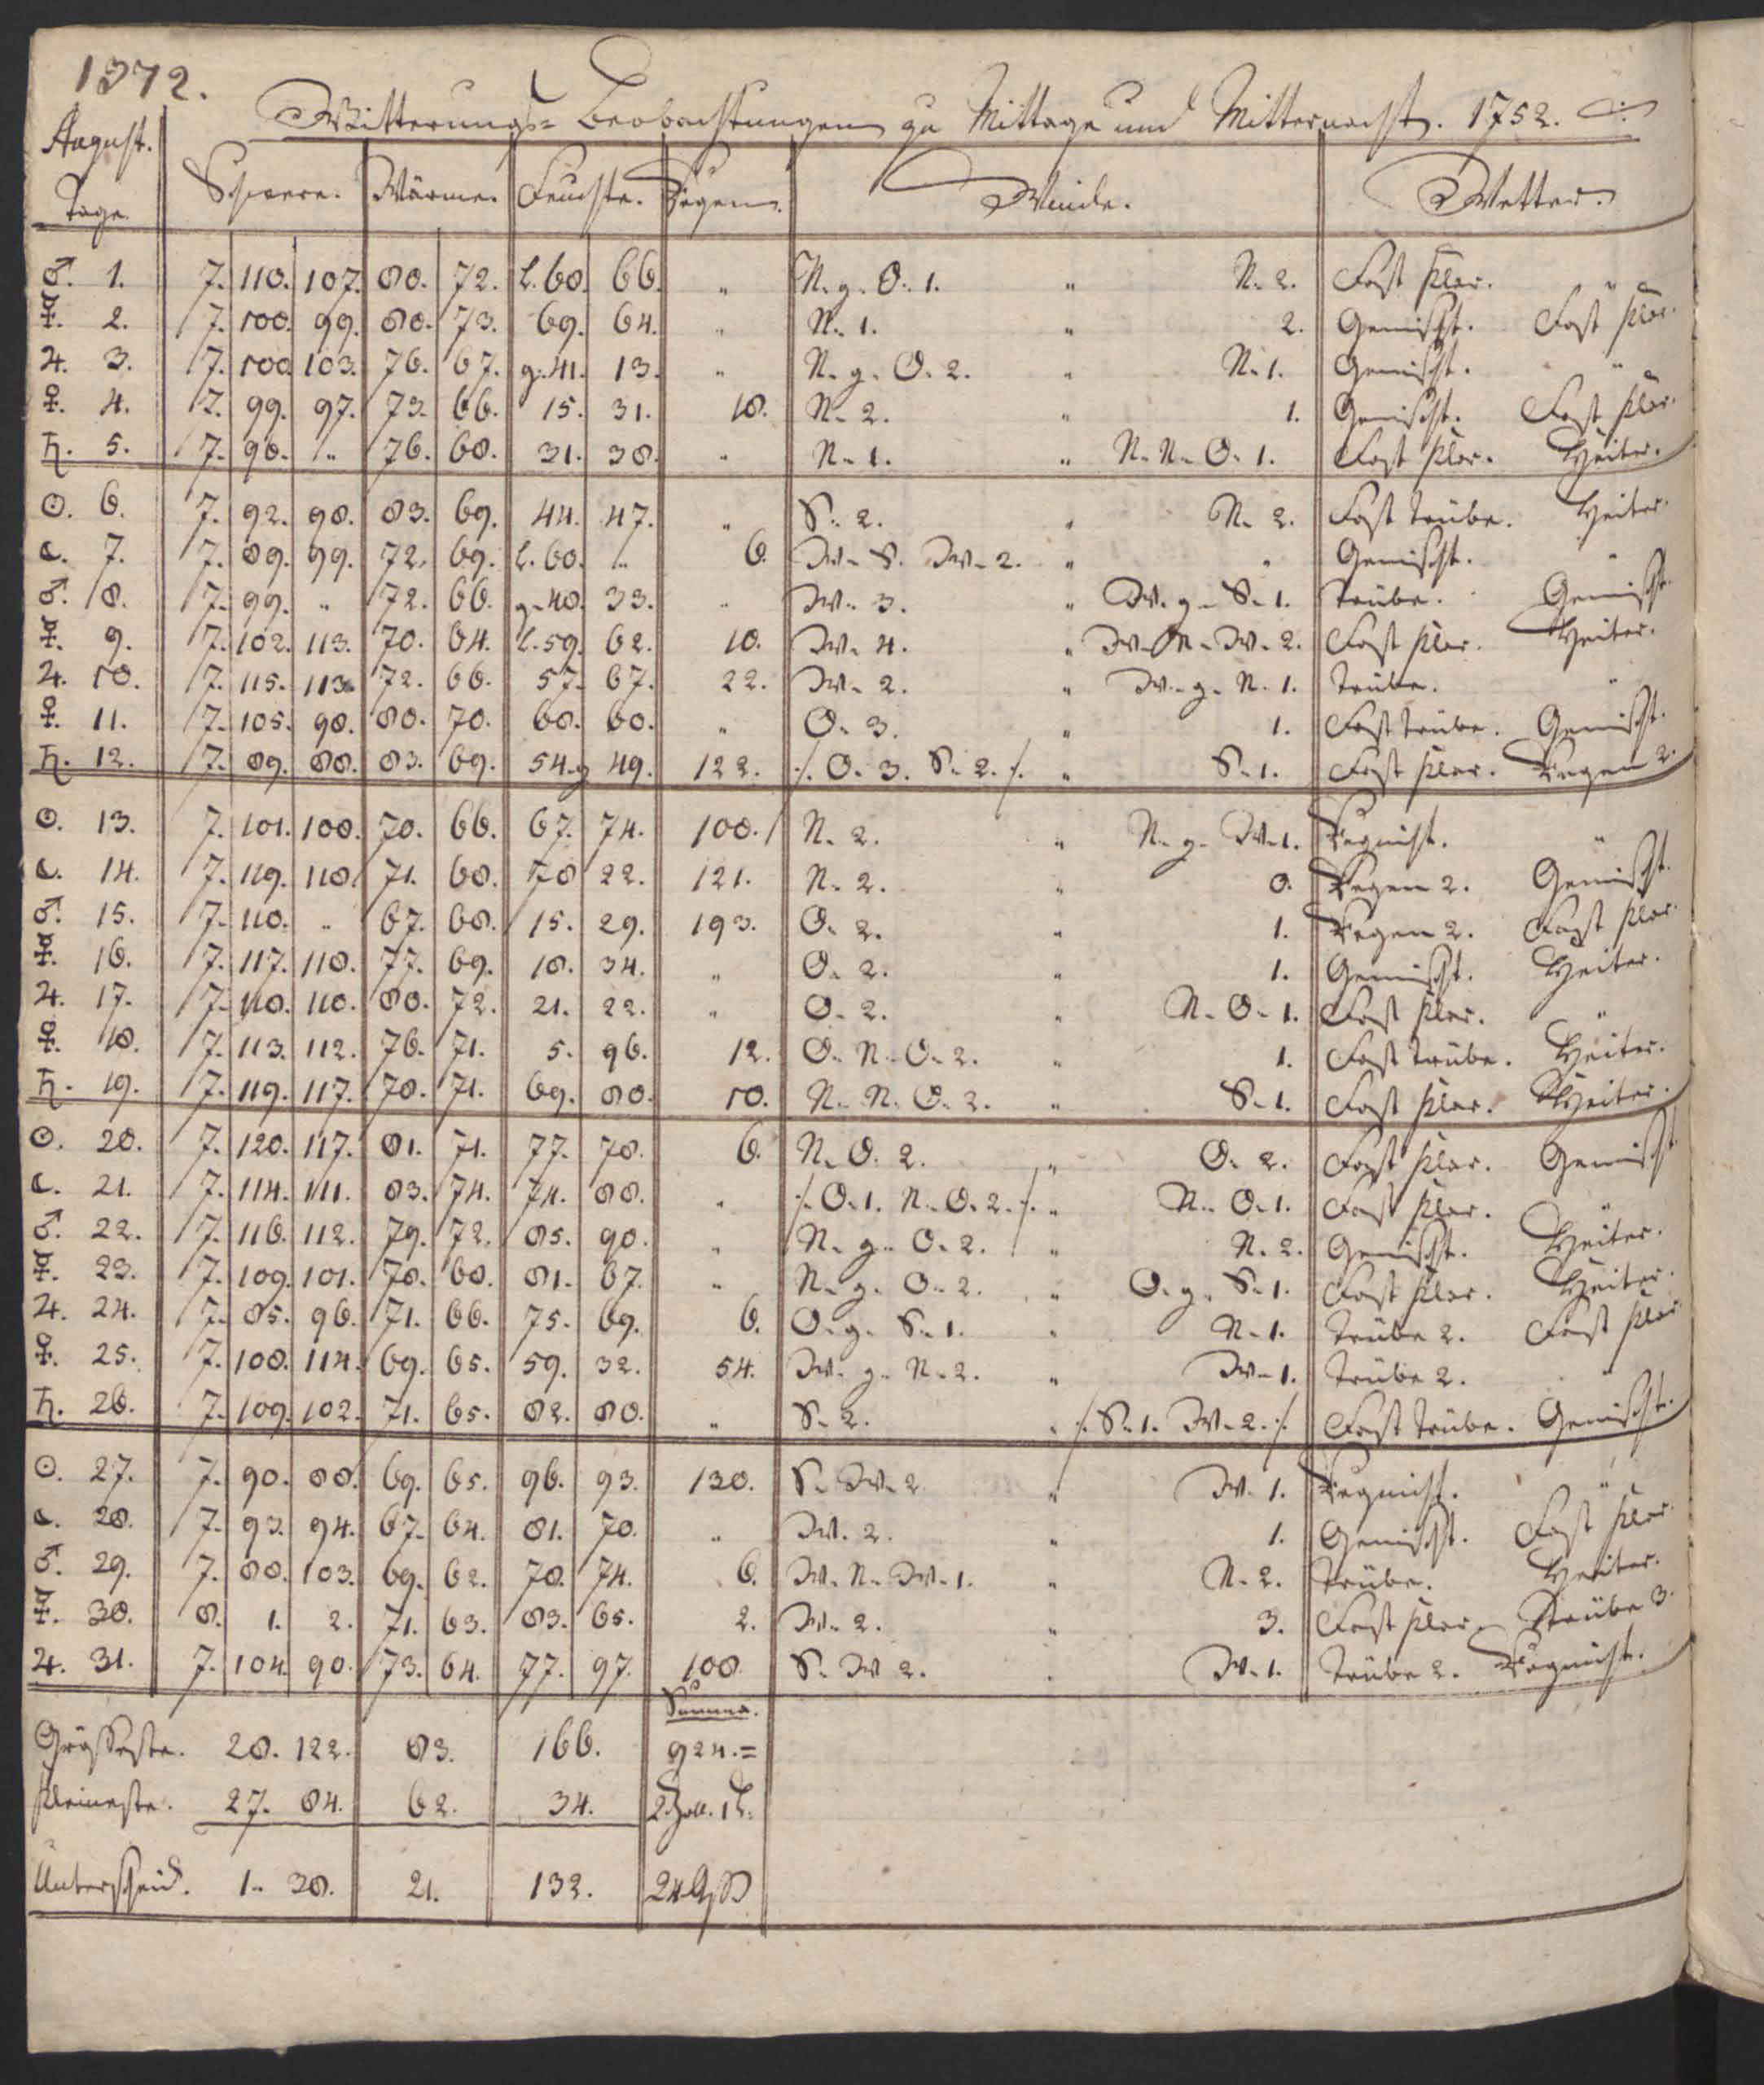 1372.
Witterungs= Beobachtungen zu Mittage und Mitternacht. 1752.
August.
Tage. Schwere. Wärme. Feuchte. Regen. Winde. Wetter.
♂. 1. 7. 110. 107. 80. 72. l. 68. 66. " N. g. O. 1. " N. 2. Fast klar. "
☿. 2. 7. 100. 99. 80. 73. 69. 64. " N. 1. " 2. Gemischt. Fast klar.
♃. 3. 7. 100. 103. 76. 67. g. 41. 13. " N. g. O. 2. " N. 1. Gemischt. "
♀. 4. 7. 99. 97. 73. 66. 15. 31. 18. N. 2. " 1. Gemischt. Fast klar.
♄. 5. 7. 98. " 76. 68. 31. 38. " N. 1. " N. N. O. 1. Fast klar. Heiter.
☉. 6. 7. 92. 98. 83. 69. 44. 47. " S. 2. " N. 2. Fast trübe. Heiter.
☾. 7. 7. 89. 99. 72. 69. l. 60. " 6. W. S. W. 2. " " Gemischt. "
♂. 8. 7. 99. " 72. 66. g. 40. 33. " W. 3. " W. g. S. 1. Trübe. Gemischt.
☿. 9. 7. 102. 113. 70. 64. l. 59. 62. 10. W. 4. " W. N. W. 2. Fast klar. Heiter.
♃. 10. 7. 115. 113. 72. 66. 57. 67. 22. W. 2. " W. g. N. 1. Trübe. "
♀. 11. 7. 105. 98. 80. 70. 68. 60. " O. 3. " 1. Fast trübe. Gemischt.
♄. 12. 7. 89. 88. 83. 69. 54. g 49. 122. ./. O. 3. S. 2. ./. " S. 1. Fast klar. Regen 2.
☉. 13. 7. 101. 108. 70. 66. 67. 74. 108. N. 2. " N. g. W. 1. Regnicht. "
☾. 14. 7. 119. 118. 71. 68. 78 22. 121. N. 2. " 0. Regen 2. Gemischt.
♂. 15. 7. 118. " 67. 68. 15. 29. 193. O. 2. " 1. Regen 2. Fast klar.
☿. 16. 7. 117. 118. 77. 69. 18. 34. " O. 2. " 1. Gemischt. Heiter.
♃. 17. 7. 118. 110. 80. 72. 21. 22. " O. 2. " N. O. 1. Fast klar. "
♀. 18. 7. 113. 112. 76. 71. 5. 96. 12. O. N. O. 2. " 1. Fast trübe. Heiter.
♄. 19. 7. 119. 117. 78. 71. 69. 80. 10. N. N. O. 2. " S. 1. Fast klar. Heiter.
☉. 20. 7. 120. 117. 81. 71. 77. 78. 6. N. O. 2. " O. 2. Fast klar. Gemischt
☾. 21. 7. 114. 111. 83. 74. 74. 88. " ./. O. 1. N. O. 2. ./. " N. O. 1. Fast klar. "
♂. 22. 7. 116. 112. 79. 72. 85. 90. " N. g. O. 2. " N. 2. Gemischt. Heiter.
☿. 23. 7. 109. 101. 78. 68. 81. 67. " N. g. O. 2. " O. g. S. 1. Fast klar. Heiter.
♃. 24. 7. 85. 96. 71. 66. 75. 69. 6. O. g. S. 1. " N. 1. Trübe 2. Fast klar
♀. 25. 7. 108. 114. 69. 65. 59. 32. 54. W. g. N. 2. " W. 1. Trübe 2. "
♄. 26. 7. 109. 102. 71. 65. 82. 80. " S. 2. " ./. S. 1. W. 2. ./. Fast trübe. Gemischt.
☉. 27. 7. 90. 88. 69. 65. 96. 93. 130. S. W. 2. " W. 1. Regnicht. "
☾. 28. 7. 93. 94. 67. 64. 81. 70. " W. 2. " 1. Gemischt. Fast klar
♂. 29. 7. 88. 103. 69. 62. 78. 74. 6. W. N. W. 1. " N. 2. Trübe. Heiter.
☿. 30. 8. 1. 2. 71. 63. 83. 65. 2. W. 2. " 3. Fast klar. Trübe 3.
♃. 31. 7. 104. 90. 73. 64. 77. 97. 108 S. W 2. " W. 1. Trübe 2. Regnicht.
Summa.
Grösseste. 28. 122. 83. 166. 924. =
Kleineste. 27. 84. 62. 34. 2 Zoll. 1 L.
Unterscheid. 1. 38. 21. 132.